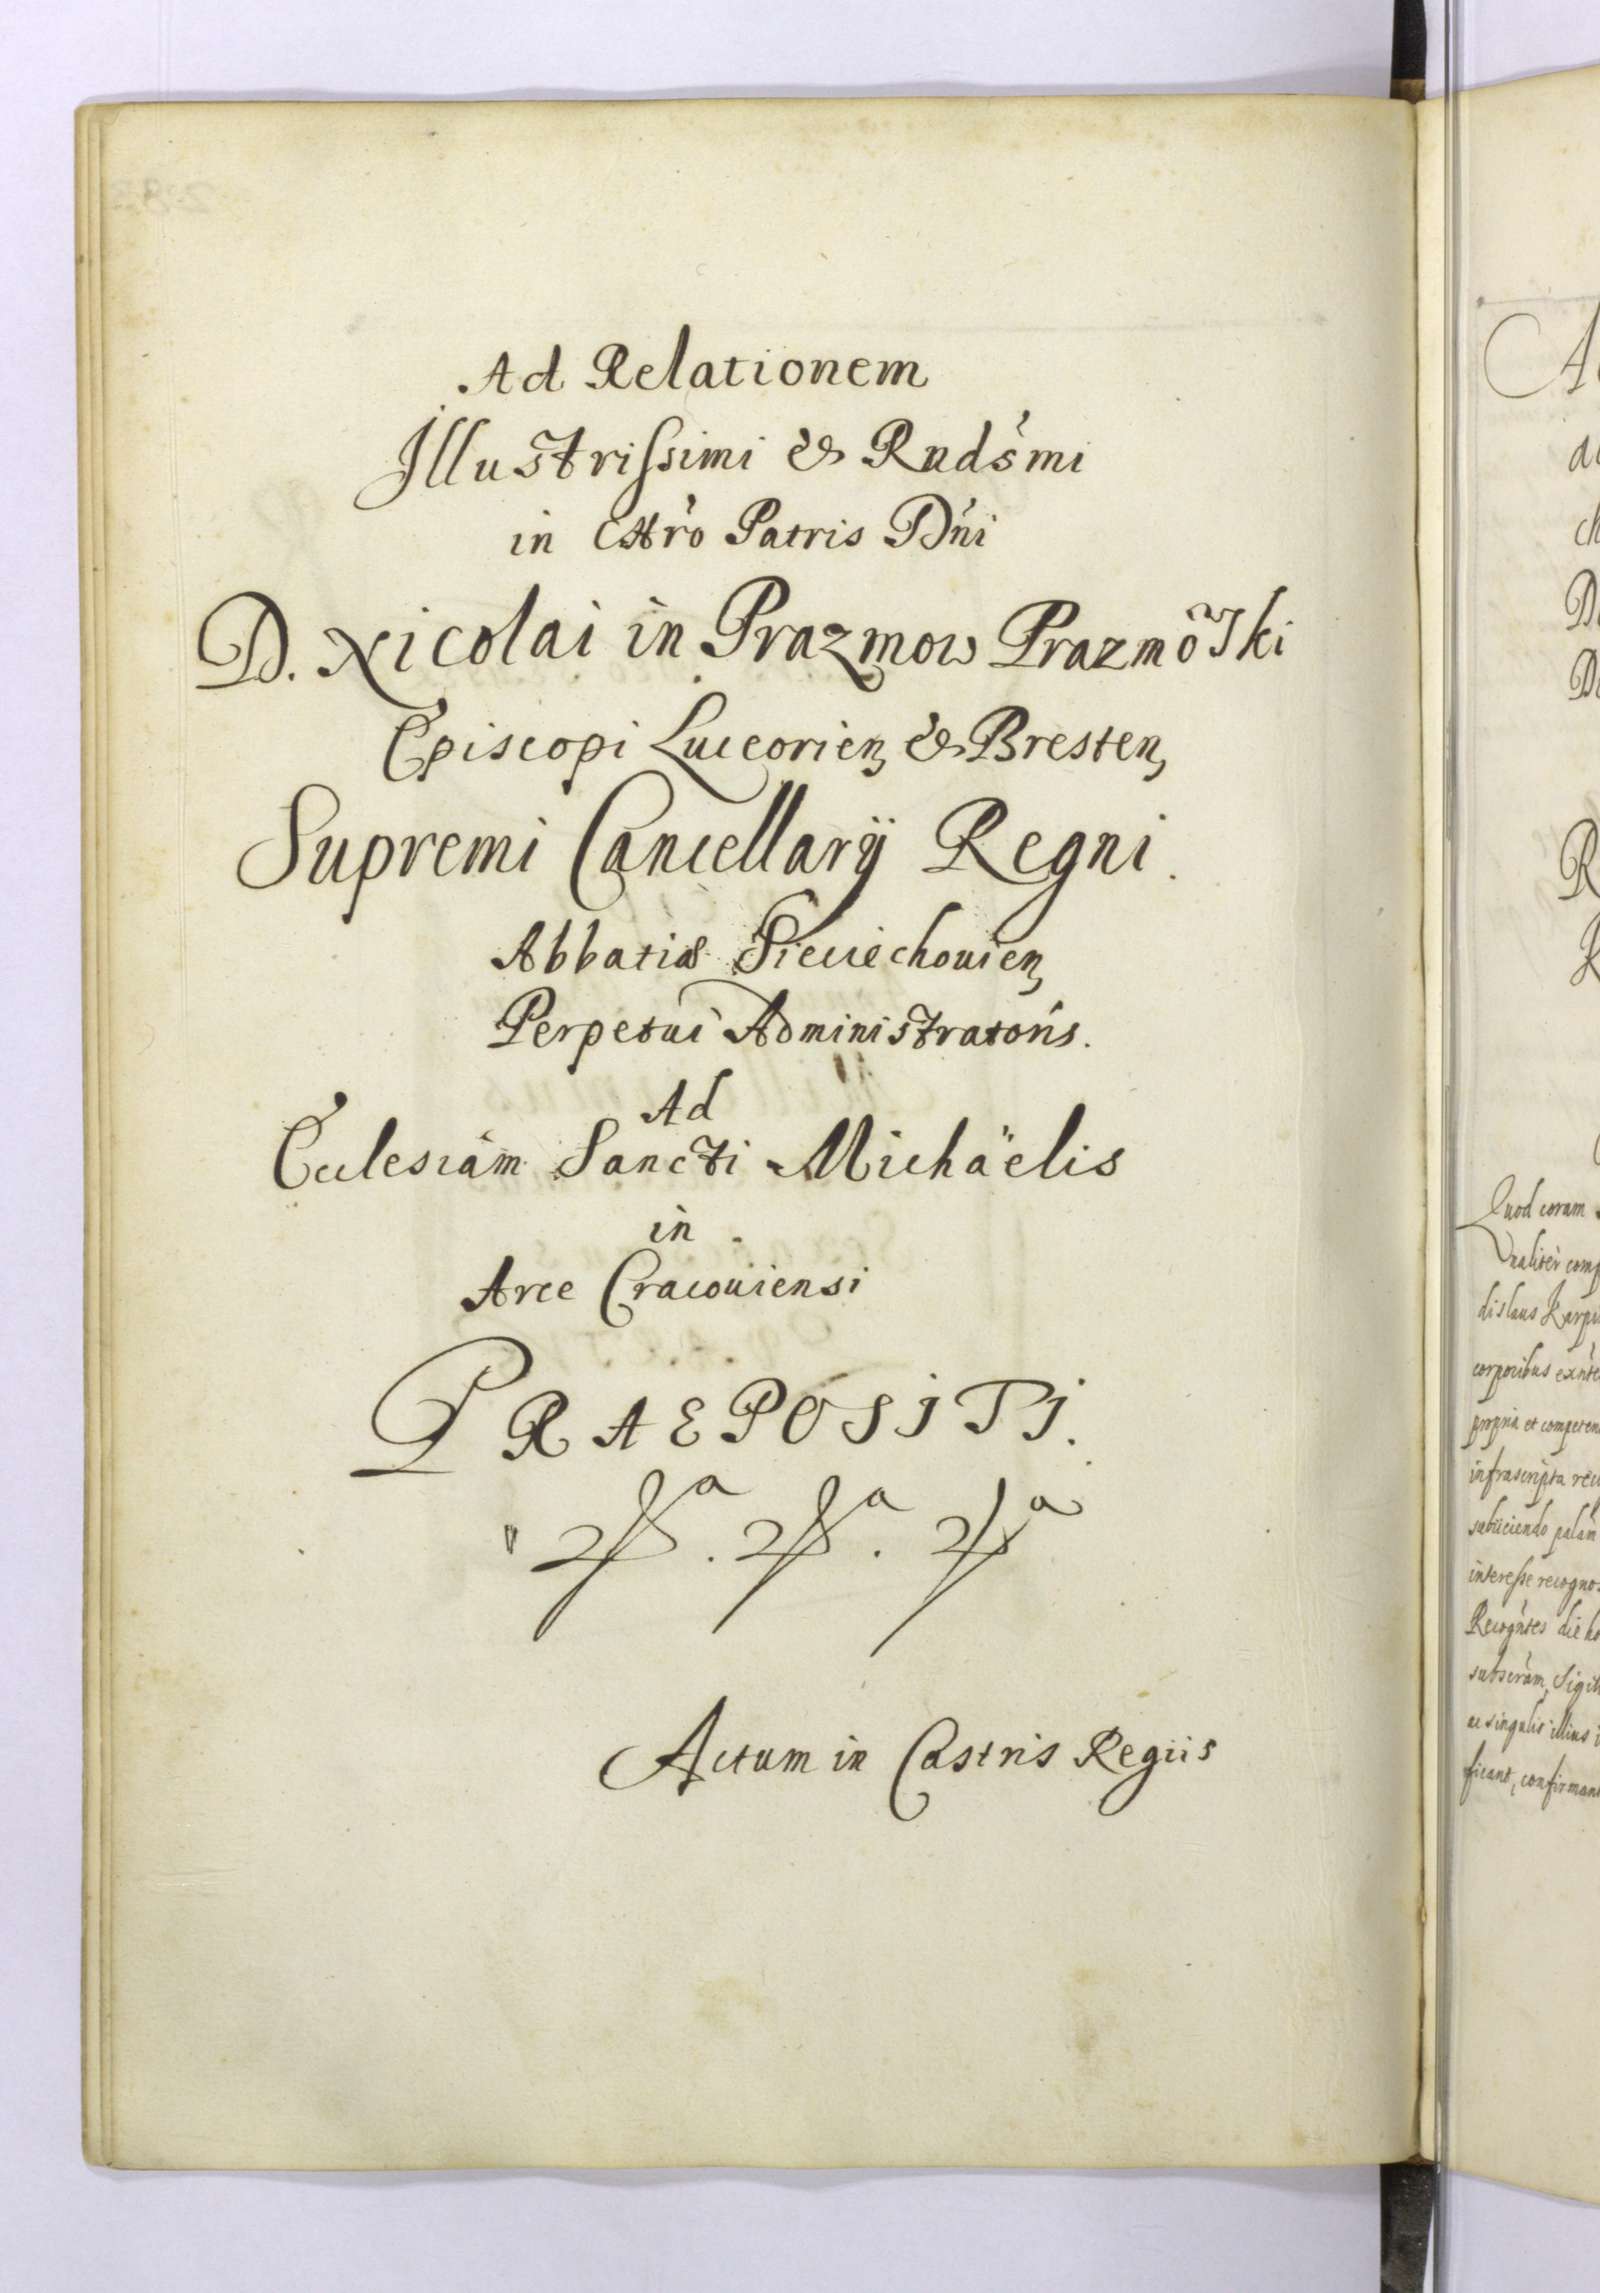 Ad Relationem
Illustrissimi & Rndsmi
in Chro Patris Dni
D. Nicolai in Prazmow Prazmoski
Episcopi Luceorien, & Bresten,
Supremi Cancellarij Regni.
Abbatiæ Sieciechouien,
Perpetui Administratoris.
Ad
Eclesiam Sancti Michäelis
in
Arce Cracouiensi
PRAEPOSITI.
Actum in Castris Regiis
Quod coram
dislaus
corporibus
propria et
infrascripta
subiiciendo palam
interesse
Recogntes die
ac singulis illius
ficant, confirmant